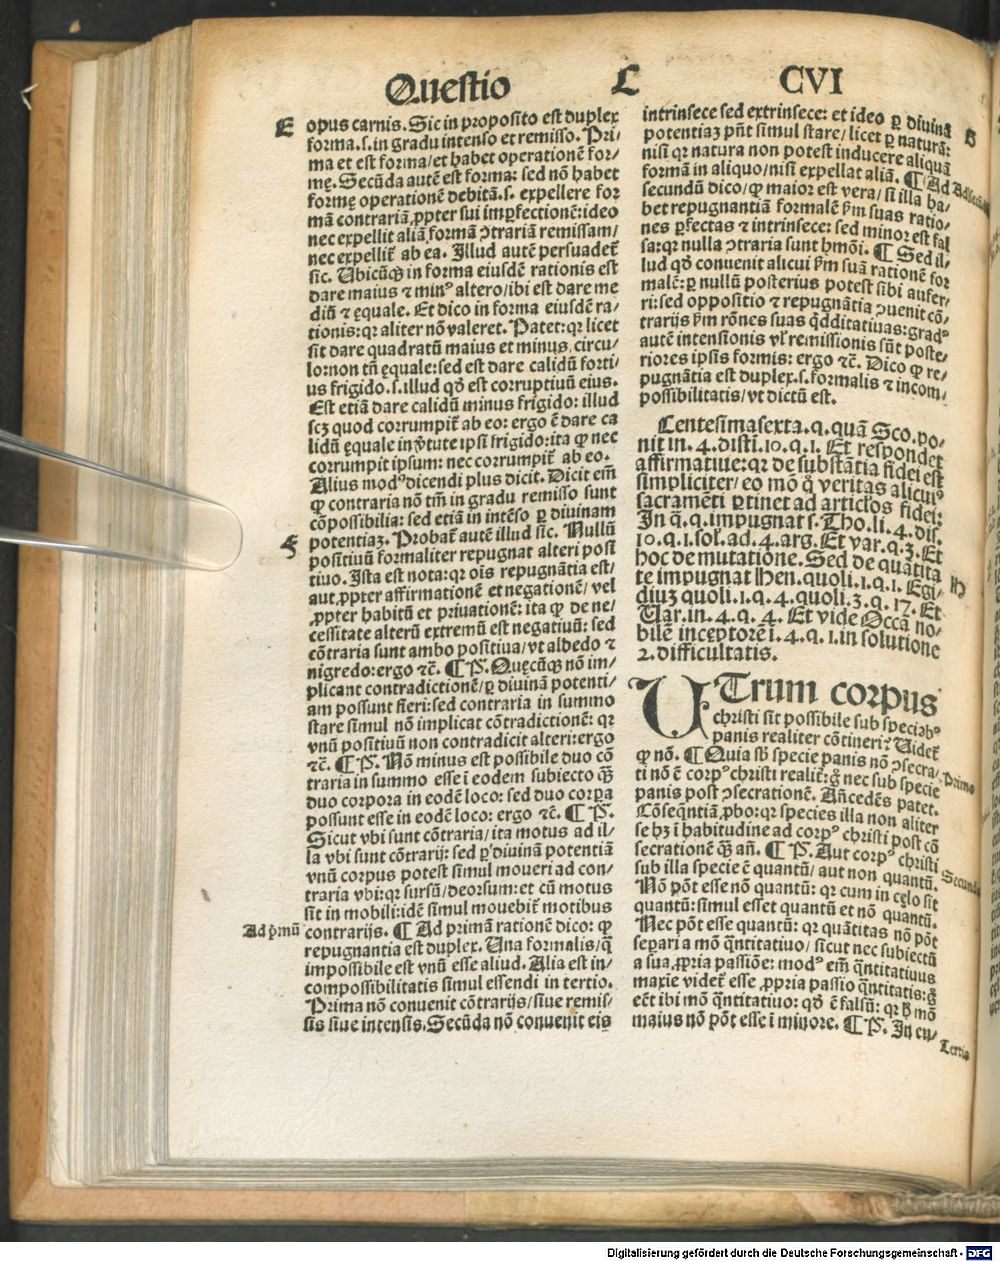 Questio L CVI
E opus carnis. Sic in proposito est duplex
forma.s. in gradu intenso et remisso. Pri-
ma et est forma/et habet operationē for-
mę. Secūda autē est forma: sed nō habet
formę operationē debitā.s. expellere for
mā contrariā ꝓpter sui imꝑfectionē: ideo
nec expellit aliā formā ↄ̄trariā remissam/
nec expellit̄ ab ea. Illud autē persuadet̄
sic. Ubicūqꝫ in forma eiusdē rationis est
dare maius ⁊ minꝰ altero/ibi est dare me
diū ⁊ ęquale. Et dico in forma eiusdē ra-
tionis: qꝛ aliter nō valeret. Patet: qꝛ licet
sit dare quadratū maius et minus circu-
lo: non tn̄ ęquale: sed est dare calidū forti-
us frigido.s. illud qd̄ est corruptiuū eius.
Est etiā dare calidū minus frigido: illud
scꝫ quod corrumpit̄ ab eo: ergo ē dare ca
lidū ęquale in v̄tute ipsi frigido: ita ꝙ nec
corrumpit ipsum: nec corrumpit̄ ab eo.
Alius modꝰ dicendi plus dicit. Dicit em̄
ꝙ contraria nō tm̄ in gradu remisso sunt
cōpossibilia: sed etiā in intēso ꝑ diuinam
F potentiaꝫ. Probat̄ autē illud sic. Nullū
positiuū formaliter repugnat alteri posi
tiuo. Ista est nota: qꝛ ois repugnātia est/
aut ꝓpter affirmationē et negationē/ vel
ꝓpter habitū et priuationē: ita ꝙ de ne/
cessitate alterū extremū est negatiuū: sed
cōtraria sunt ambo positiua/vt albedo ⁊
nigredo: ergo ⁊c̄. ¶ P̄. Quęcūqꝫ nō im/
plicant contradictionē/ꝑ diuinā potenti/
am possunt fieri: sed contraria in summo
stare simul nō implicat cōtradictionē: qꝛ
vnū positiuū non contradicit alteri: ergo
⁊c̄. ¶ P̄. Nō minus est possibile duo cō
traria in summo esse ī eodem subiecto qꝫ̄
duo corpora in eodē loco: sed duo corꝑa
possunt esse in eodē loco: ergo ⁊c̄. ¶ P̄.
Sicut vbi sunt cōtraria/ita motus ad il-
la vbi sunt cōtrarij: sed ꝑ diuinā potentiā
vnū corpus potest simul moueri ad con/
traria vbi: qꝛ sursū/deorsum: et cū motus
sit in mobili: idē simul mouebit̄ motibus
Ad pͥmū contrarijs. ¶ Ad primā rationē dico: ꝙ
repugnantia est duplex. Una formalis/q̄
impossibile est vnū esse aliud. Alia est in/
compossibilitatis simul essendi in tertio.
Prima nō conuenit cōtrarijs/siue remis/
sis siue intensis. Secūda nō conuenit eis
intrinsece sed extrinsece: et ideo ꝑ diuinā G
potentiaꝫ pn̄t simul stare/ licet ꝑ naturā:
nisi qꝛ natura non potest inducere aliquā
formā in aliquo/nisi expellat aliā. ¶ Ad
secundū dico/ꝙ maior est vera/ si illa ha-
bet repugnantiā formalē ẜm suas ratio/
nes ꝑfectas ⁊ intrinsece: sed minor est fal
sa: qꝛ nulla ↄ̄traria sunt hmōi. ¶ Sed il/
lud qd̄ conuenit alicui ẜm suā rationē for
malē: ꝑ nullū posterius potest sibi aufer/
ri: sed oppositio ⁊ repugnātia ↄuenit cō/
trarijs ẜm rōnes suas q̄dditatiuas: gradꝰ
autē intensionis vl̓ remissionis sūt poste/
riores ipsis formis: ergo ⁊c̄. Dico ꝙ re/
pugnātia est duplex.s. formalis ⁊ incom/
possibilitatis/ vt dictū est.
Centesimasexta.q. quā Sco. po-
nit in.4. disti.10.q.1. Et respondet
affirmatiue: qꝛ de substātia fidei est
simpliciter/ eo mō q̇ veritas alicuiꝰ
sacramēti ꝑtinet ad articłos fidei:
In q̄.q. impugnat s. Tho. li.4. dis.
10.q.1. sol. ad.4. arg. Et var. q.3. Et
hoc de mutatione. Sed de quātita
te impugnat Hen. quoli.1.q.1. Egi/ H
diuꝫ quoli.1.q.4. quoli.3.q.17. Et
Uar. in.4.q.4. Et vide Occā no/
bilē inceptorē ī.4.q.1. in solutione
2. difficultatis.
UTrum corpus
christi sit possibile sub speciebꝰ
panis realiter cōtineri? Uidet̄
ꝙ nō. ¶ Quia sb̄ specie panis nō ↄsecra/ Primo
ti nō ē corpꝰ christi realit̄: g̊ nec sub specie
panis post ↄsecrationē. Añcedēs patet.
Cōseqn̄tiā ꝓbo: qꝛ species illa non aliter
se hꝫ ī habitudine ad corpꝰ christi post cō
secrationē qꝫ̄ añ. ¶ P̄. Aut corpꝰ christi
sub illa specie ē quantū/ aut non quantū. Secundo
Nō pōt esse nō quantū: qꝛ cum in cęlo sit
quantū: simul esset quantū et nō quantū.
Nec pōt esse quantū: qꝛ quātitas nō pōt
seꝑari a mō qn̄titatiuo/ sicut nec subiectū
a sua ꝓpria passiōe: modꝰ em̄ qn̄titatiuus
maxie videt̄ esse ꝓpria passio qn̄titatis: g̊
eēt ibi mō qn̄titatiuo: qd̄ ē falsū: qꝛ ẜ mō
maius nō pōt esse ī minore. ¶ P̄. In eu/
Tertio
Digitalisierung gefördert durch die Deutsche Forschungsgemeinschaft - DFG